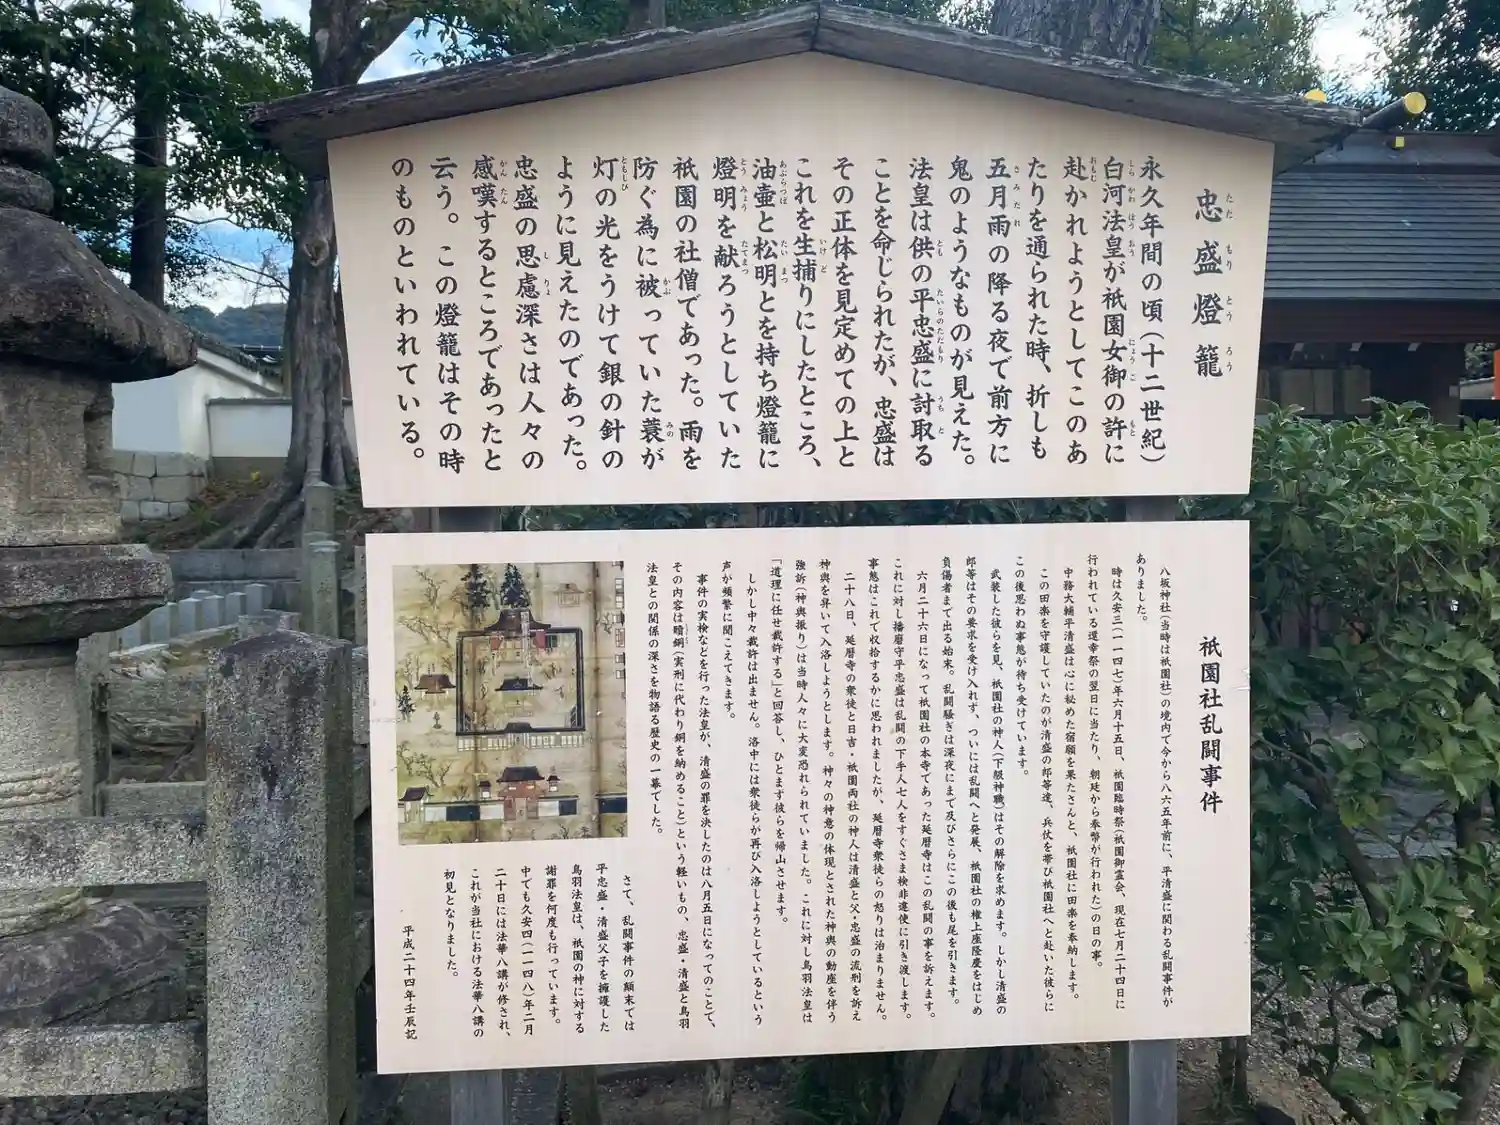 忠盛燈籠
ただもりとうろう
永久年間の頃(十二世紀)
白河法皇が祇園女御の許に
赴かれようとしてこのあ
たりを通られた時、折しも
五月雨の降る夜で前方に
鬼のようなものが見えた。
法皇は供の平忠盛に討取る
ことを命じられたが、忠盛は
その正体を見定めての上と
これを生捕りにしたところ、
油壷と松明とを持ち燈籠に
燈明を献ろうとしていた
祇園の社僧であった。雨を
防ぐ為に被っていた蓑が
灯の光をうけて銀の針の
ように見えたのであった。
忠盛の思慮深さは人々の
感嘆するところであったと
云う。この燈籠はその時
のものといわれている。
祇園社乱闘事件
八坂神社(当時は祇園社)の境内で今から八六五年前に、平清盛に関わる乱闘事件が
ありました。
時は久安三(一一四七)年六月十五日、祇園臨時祭(祇園御霊会、現在七月二十四日に
行われている還幸祭の翌日に当たり、朝廷から奉幣が行われた)の日の事。
中務大輔平清盛は心に秘めた宿願を果たさんと、祇園社に田楽を奉納します。
この田楽を守護していたのが清盛の郎等達、兵仗を帯び祇園社へと赴いた彼らに
この後思わぬ事態が待ち受けています。
武装した彼らを見、祇園社の神人(下級神職)はその解除を求めます。しかし清盛の
郎等はその要求を受け入れず、ついには乱闘へと発展、祇園社の権上座隆慶をはじめ
負傷者まで出る始末。乱闘騒ぎは深夜にまで及びさらにこの後も尾を引きます。
六月二十六日になって祇園社の本寺であった延暦寺はこの乱闘の事を訴えます。
これに対し播磨守平忠盛は乱闘の下手人七人をすぐさま検非違使に引き渡します。
事態はこれで収拾するかに思われましたが、延暦寺衆徒らの怒りは治まりません。
二十八日、延暦寺の衆徒と日吉・祇園両社の神人は清盛と父・忠盛の流刑を訴え
神輿を舁いて入洛しようとします。神々の神意の体現とされた神輿の動座を伴う
強訴(神輿振り)は当時人々に大変恐れられていました。これに対し鳥羽法皇は
「道理に任せ裁許する」と回答し、ひとまず彼らを帰山させます。
しかし中々裁許は出ません。洛中には衆徒らが再び入洛しようとしているという
声が頻繁に聞こえてきます。
事件の実検などを行った法皇が、清盛の罪を決したのは八月五日になってのことで、
その内容は贖銅(実刑に代わり銅を納めること)という軽いもの、忠盛・清盛と鳥羽
法皇との関係の深さを物語る歴史の一幕でした。
さて、乱闘事件の顛末では
平忠盛・清盛父子を擁護した
鳥羽法皇は、祇園の神に対する
謝罪を何度も行っています。
中でも久安四(一一四八)年二月
二十日には法華八講が修され、
これが当社における法華八講の
初見となりました。
平成二十四年壬辰記